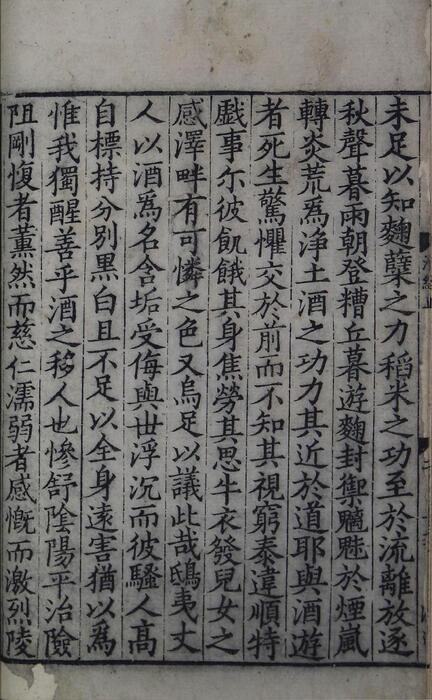 未足以知麴糵之力稻米之功至於流離放逐
秋聲暮雨朝登糟丘暮遊麴封禦魑魅於煙嵐
轉炎荒爲浄土酒之功力其近於道耶與酒遊
者死生驚懼交於前而不知其視窮泰違順特
戲事尓彼飢餓其身焦勞其思牛衣發兒女之
感澤畔有可憐之色又烏足以議此哉鴟夷丈
人以酒爲名含垢受侮與世浮沉而彼騷人高
自標持分別黒白且不足以全身遠害猶以爲
惟我獨醒善乎酒之移人也慘舒陰陽平治險
阻剛愎者薫然而慈仁濡弱者感慨而激烈陵